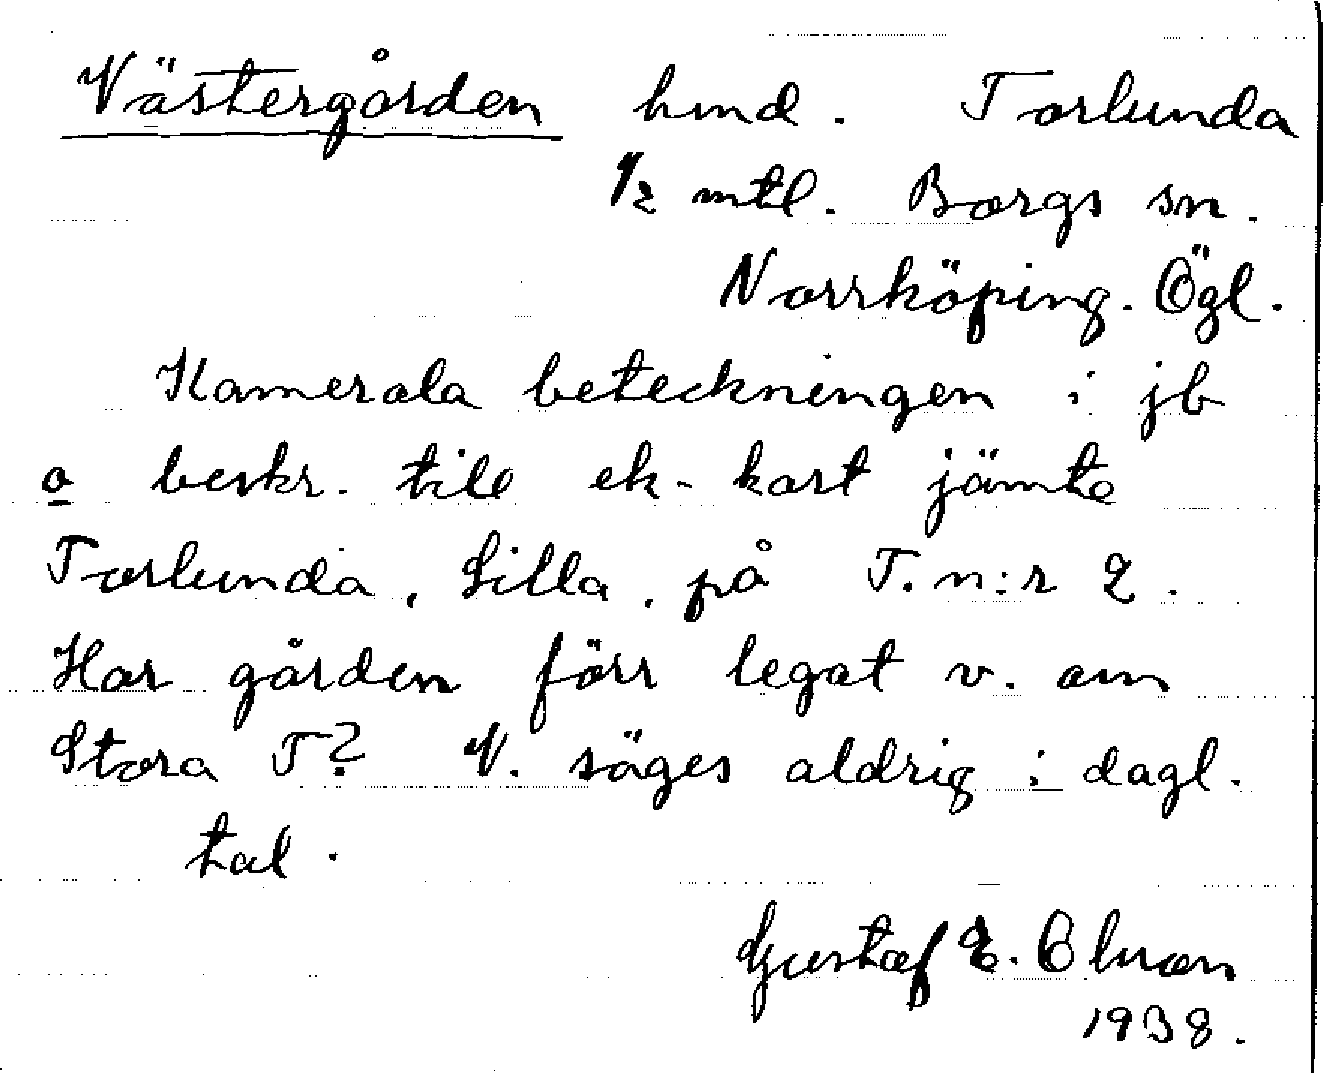 Västergården hmd. Torlunda
1/2 mtl. Borgs sn.
Norrköping. Ögl.
Kamerala beteckningen i jb
o beskr. till ek-kart jämte
Torlunda, Lilla, på T. n:r 2.
Har gården förr legat v. om
Stora T? V. säges aldrig i dagl.
tal.
Gustaf E. Olsson
1938.